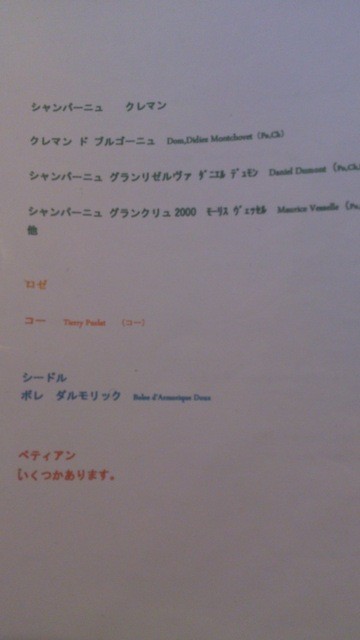 シャンパーニュ　クレマン
クレマン ド ブルゴーニュ Dom,Didier Montchovet (Pn,Ch)
シャンパーニュ グランリゼルヴァ ﾀﾞﾆｴﾙ ﾃﾞｭﾓﾝ Daniel Dumont (Pn,Ch
シャンパーニュ グランクリュ 2000 ﾓｰﾘｽ ｳﾞｪｯｾﾙ Maurice Vesselle (Pn,
他
ロゼ
コー Tierry Puzlat （コー）
シードル
ボレ ダルモリック Bolee d'Armorique Doux
ペティアン
いくつかあります。